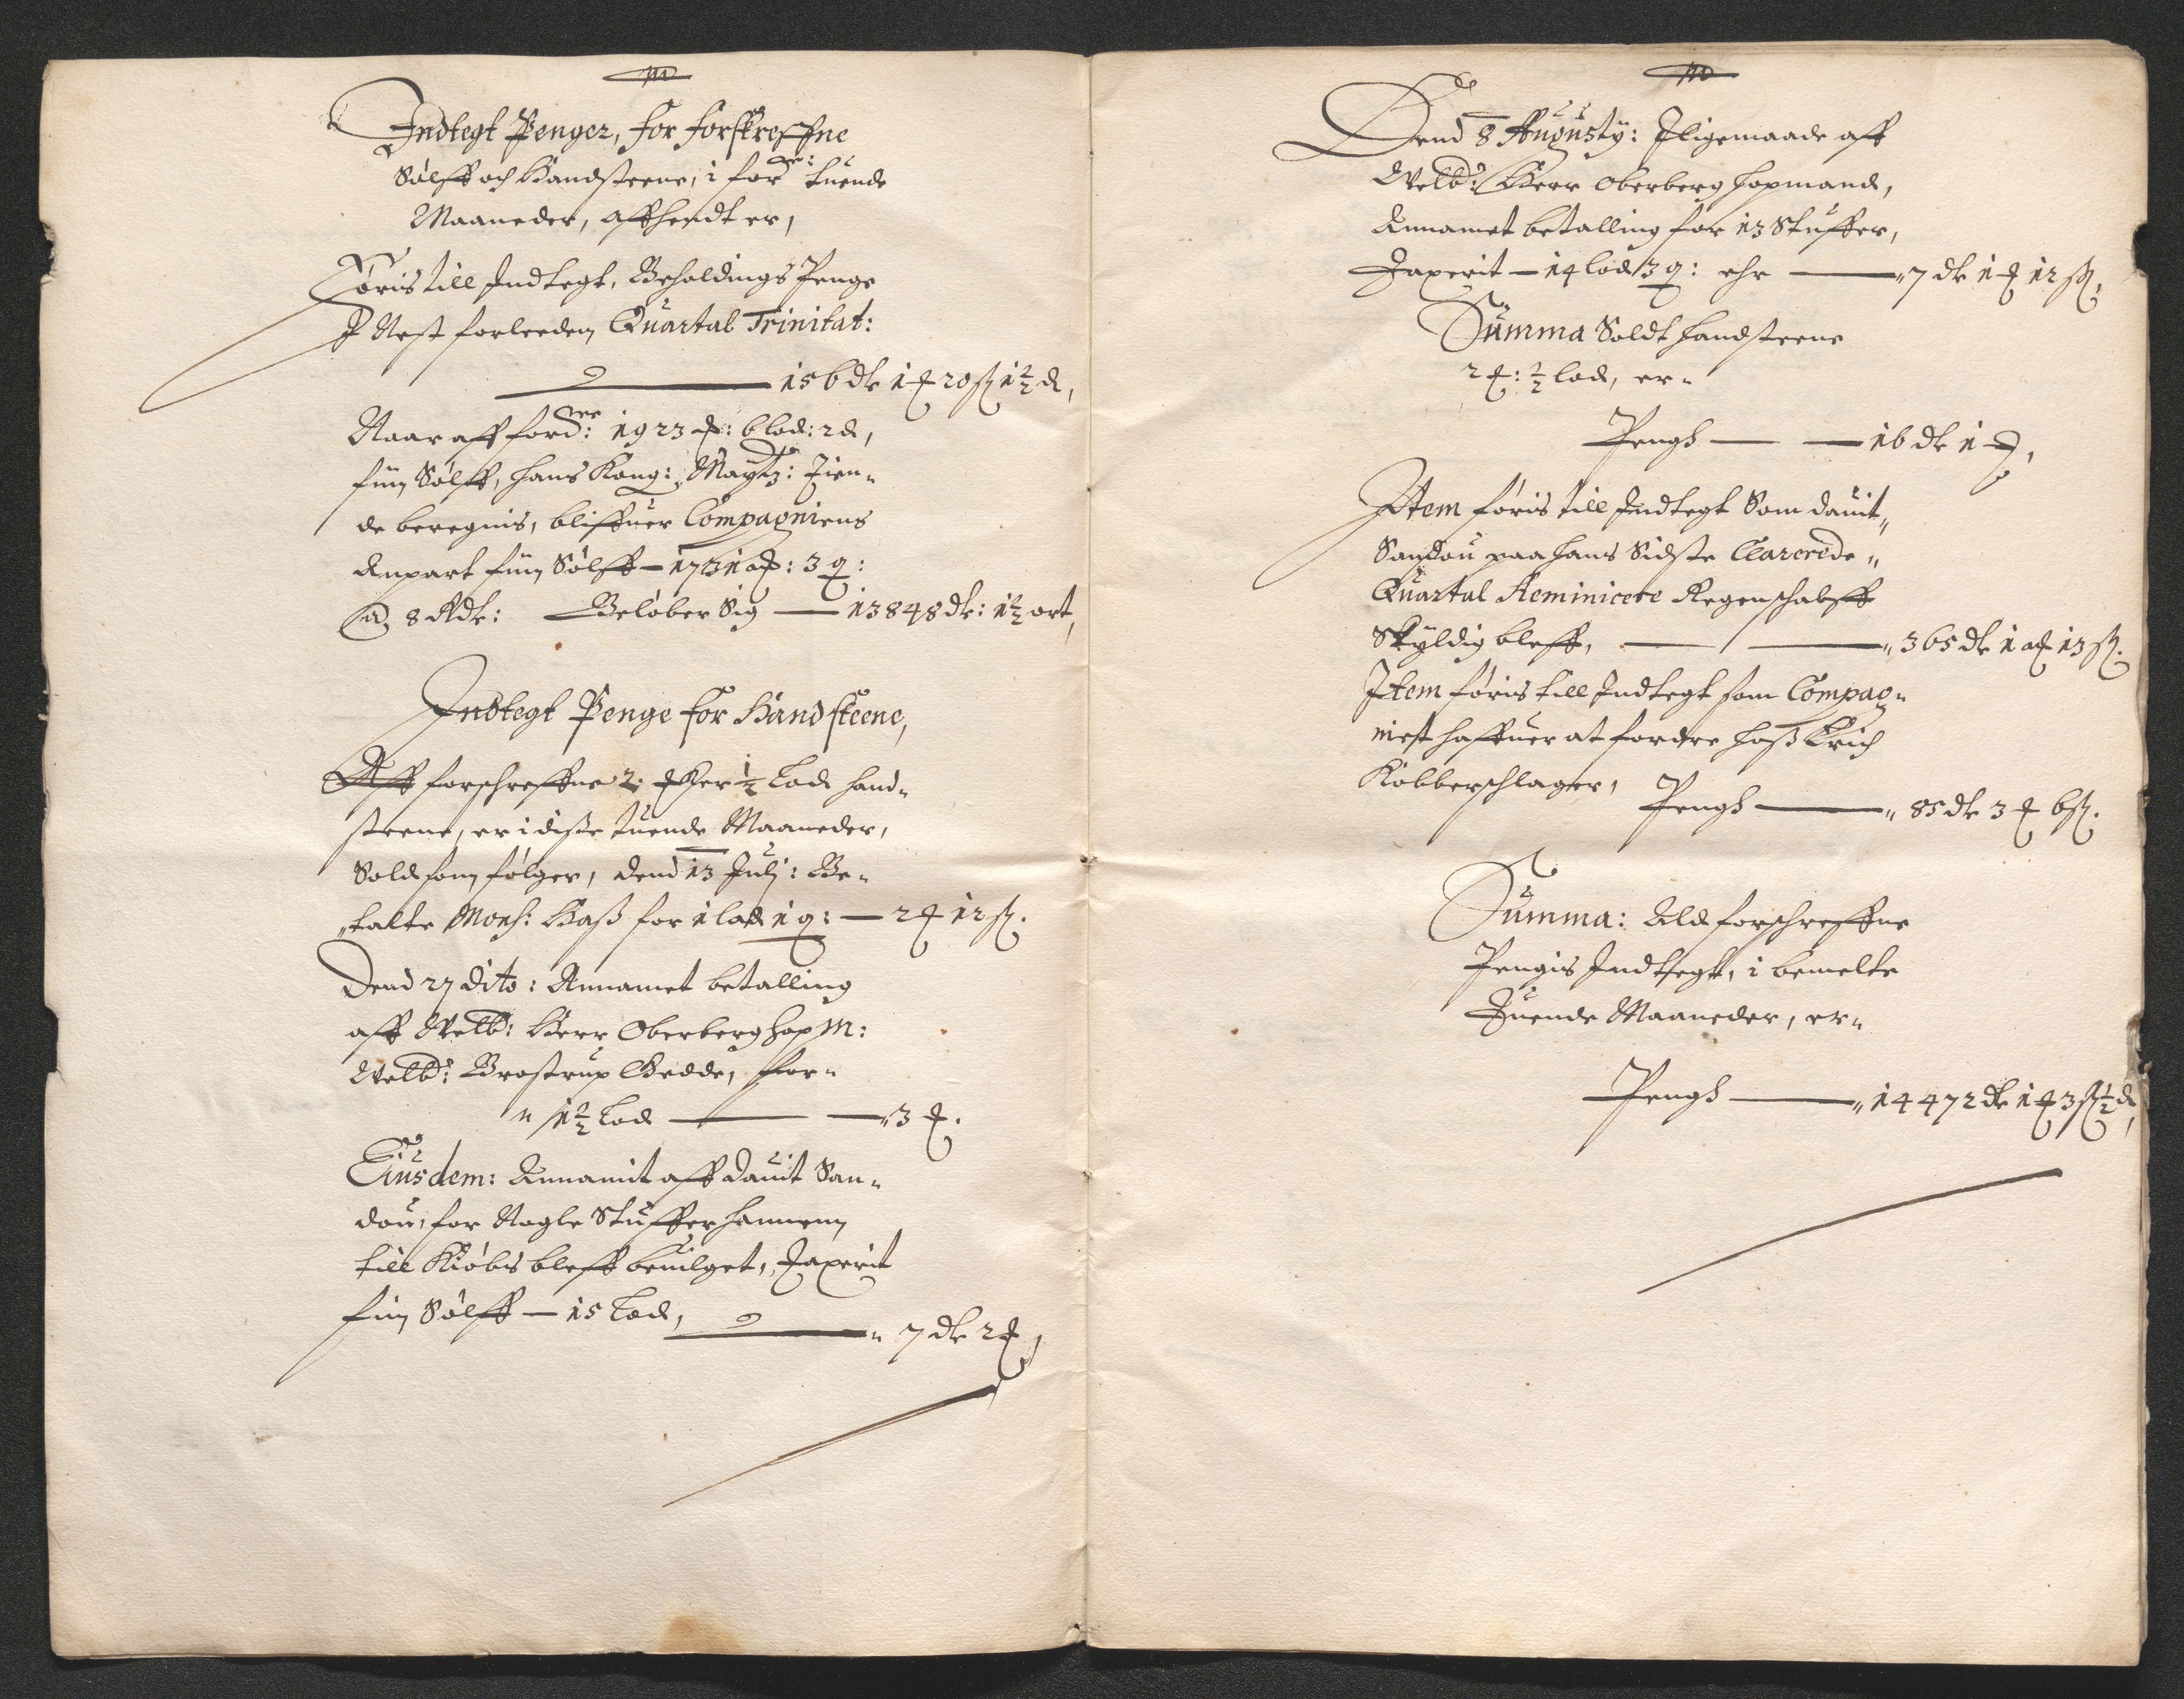 Indtegt Penger, for forskreffne
Sølff och Handsteene, i forne: tuende
Maaneder, affhendt er,
Føris till Indtegt, Beholdings Penge
I Nest forleeden Quartal Trinitat:
156 dr 1 ꝗ 20 ß 1½ d,
Naar aff fordne: 1923 mk: 6 lod: 2 d,
fiin Sølff, Hans Kong: Maytz: Tien-
de beregnis, bliffuer Compagniens
Anpart fiin Sølff — 1731 mk: 3 q:
@ 8 Rdr: Beløber Sig — 13848 dr: 1½ ort,
Indtegt Penge for Handsteene,
Aff forschreffne 2 mker ½ Lod hand-
steene, er i disse tuende Maaneder,
Sold som følger, dend 13 Julj: Be-
talte Mons: Hass for 1 lod 1 q: — 2 ꝗ 12 ß.
Dend 27 dito: Annamet betalling
aff Welb: Herr Oberberghopm:
Welb: Brostrup Gedde, for-
1½ Lod — 3 ꝗ.
Eiusdem: Annamit aff Dauit San-
dou, for Nogle Stuffer hannem
till Kiøbs bleff beuilget, Taxerit
fiin Sølff — 15 Lod,
7 dr 2 ꝗ,
Dend 8 Augusty: Iligemaade aff
Welb: Herr Oberberghopmand,
Annamet betalling for 13 Stuffer,
Taxerit — 14 lod 3 q: ehr — 7 dr 1 ꝗ 12 ß,
Summa Soldt handsteene
2 mk: ½ lod, er-
Pengh — 16 dr 1 ꝗ,
Item føris till Indtegt Som Dauit
Sandou paa hans Sidste Clarerede
Quartal Reminicere Regenschabff
Skyldig bleff, — 365 dr 1 ꝗ 13 ß.
Item føris till Indtegt som Compag-
niest haffuer at fordre hoss Erich
Kobberschlager,
Pengh — 85 dr 3 ꝗ 6 ß.
Summa: Ald forschreffne
Pengis Indtegt, i bemelte
Tuende Maaneder, er-
Pengh — 14472 dr 1 ꝗ 3 ß ½ d,